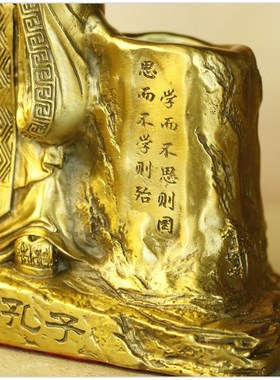 学而不思则罔
思而不学则殆
孔子